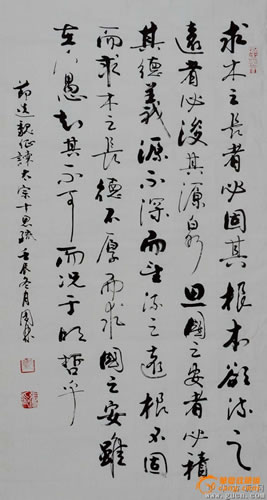 求木之長者必固其根本欲流之
遠者必浚其源泉思國之安者必積
其德義源不深而望流之遠根不固
而求木之長德不厚而求國之安雖
在下愚知其不可而況于明哲乎
節选魏征諫太宗十思疏壬辰冬月國